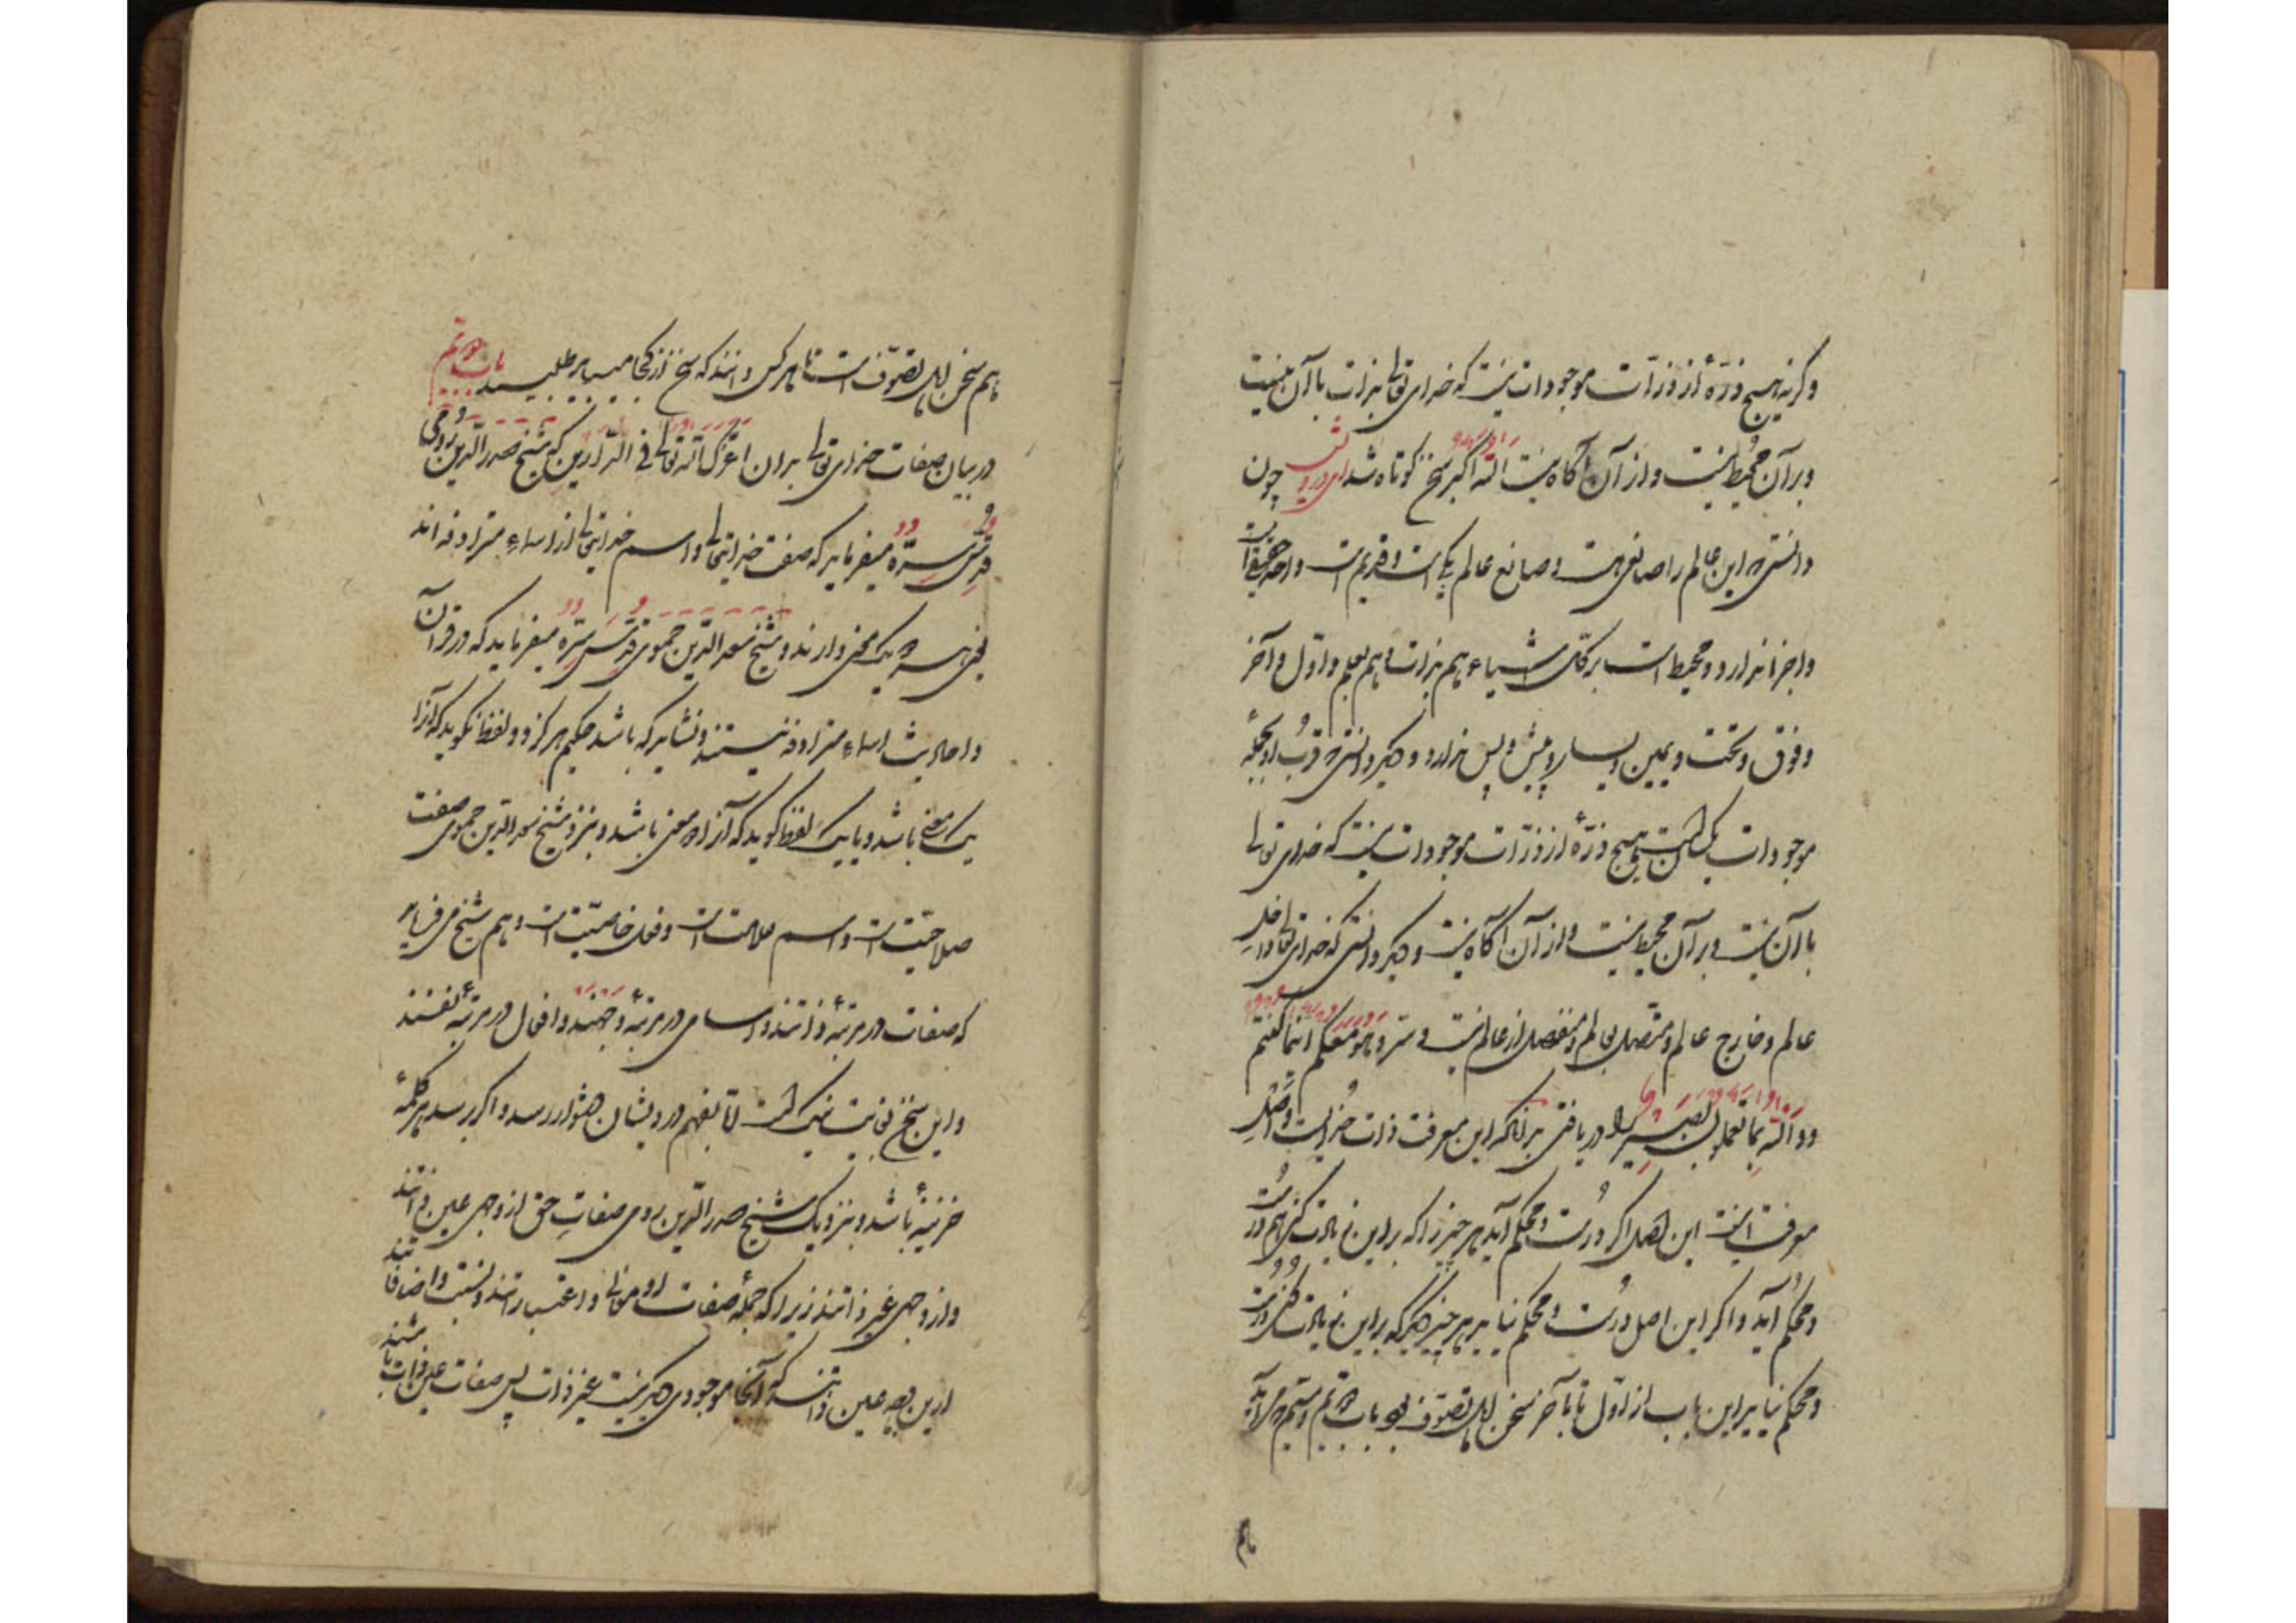 وکرنه هیچ ذرهٔ از ذرات موجودات نیست که خدای تعالی بذات با آن نیست
و بر آن محیط نیست و از آن آکاه نیست الله اکبر سخن کوتاه شد ای درویش چون
دانستی که این عالم را صانعی هست و صانع عالم یکی است و قدیم است واحد حقیقی است
و اجزا ندارد و محیط است بر کل اشیاء هم بذات و هم بعلم و اول و آخر
و فوق و تحت و یمین و یسار و پیش و پس ندارد و دیکر دانستی که قرب او بجمله
موجودات یکسان است هیچ ذرهٔ از ذرات موجودات نیست که خدای تعالی
با آن نیست و بر آن محیط نیست و از آن آکاه نیست و دیکر دانستی که خدای تعالی داخل
عالم و خارج عالم و متصل بعالم و منفصل از عالم نیست و سر و هو معکم اینما کنتم
و والله بما تعملون بصیر را دریافتی بدانکه این معرفت ذات خدایست و اصل
معرفت اینست این اصل اکر درست و محکم آید هر چیز را که بر این زیادت کنی هم درست
و محکم آید و اکر این اصل درست و محکم نیاید هر چیز دیکر که بر این زیادت کنی درست
و محکم نیاید این باب از اول تا بآخر سخن اهل تصوف بود باب
هم سخن اهل تصوف است تا هر کس دانند که سخن از کجا میباید طلبید باب
در بیان صفات خدای تعالی بدان اعزک الله تعالی فی الدارین که شیخ صدرالدین رومی
قدس سره میفرماید که صفت خدایتعالی و اسم خدایتعالی از اسماء مترادفه اند
یعنی هر سه یک معنی دارند و شیخ سعد الدین حموی قدس سره میفرماید که در قرآن
و احادیث اسماء مترادفه نیستند و نشاید که باشد حکیم هرکز دو لفظ نکوید که آنرا
یک معنی باشد و یا یک لفظ کوید که آنرا معنی باشد و بنزد شیخ سعد الدین حموی صفت
صلاحیت است و اسم علامت است و فعل خاصیت است و هم شیخ می فرماید
که صفات در مرتبهٔ ذاتند و اسامی در مرتبهٔ وجهند و افعال در مرتبهٔ نفسند
و این سخن بغایت نیک است اما بفهم درویشان دشوار رسد و اکر برسد هر کلمهٔ
خزینهٔ باشد و بنزدیک شیخ صدرالدین رومی صفات حق از وجهی عین ذاتند
و از وجهی غیر ذاتند زیرا که جملهٔ صفات او معانی و اعتبارات و نسبت و اضافاتند
از این وجه عین ذاتند که آنجا موجودی دیکر نیست غیر ذات پس صفات عین ذات باشند